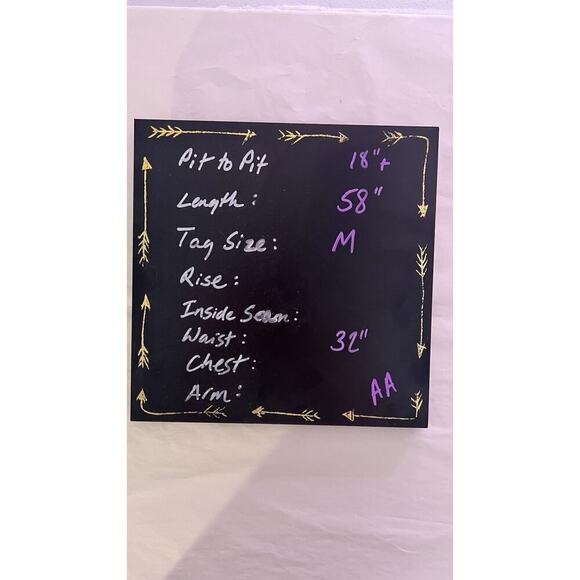 Pit to Pit 18"+
Length: 58"
Tag Size: M
Rise:
Inside Seam:
Waist: 32"
Chest:
Arm:
AA